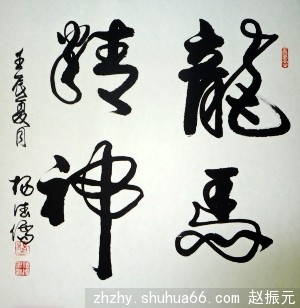 龍馬
精神
壬辰夏月
杨德儒
zhzhy.shuhua66.com 赵振元